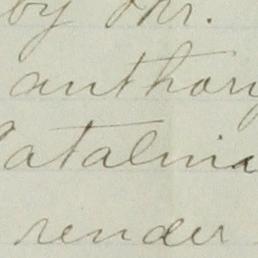 by Mr.
anthony
Catalina
render